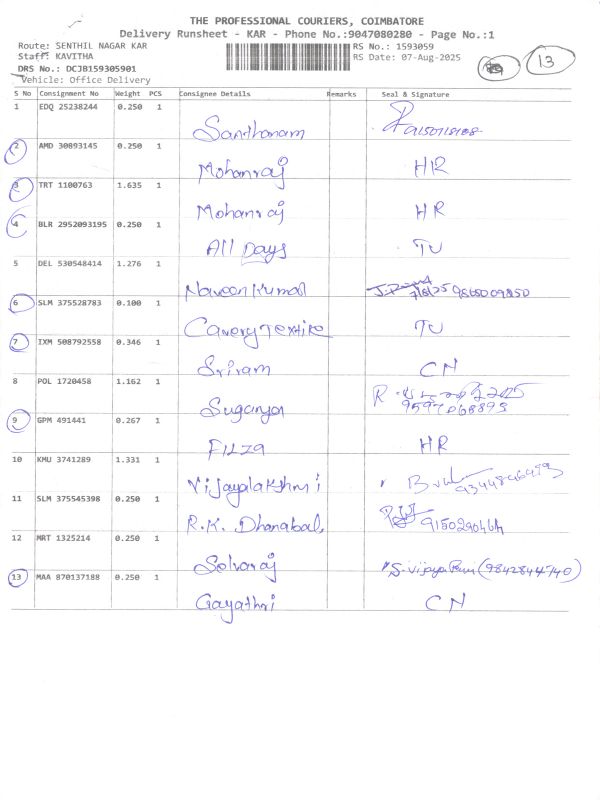 THE PROFESSIONAL COURIERS, COIMBATORE
Delivery Runsheet - KAR - Phone No.:9047080280 - Page No.:1
Route: SENTHIL NAGAR KAR
RS No.: 1593059
Staff: KAVITHA
RS Date: 07-Aug-2025
13
DRS No.: DCJB159305901
Vehicle: Office Delivery
S No Consignment No Weight PCS Consignee Details Remarks Seal & Signature
1 EDQ 25238244 0.250 1
Santhanam
2 AMD 30893145 0.250 1
Mohanraj HR
3 TRT 1100763 1.635 1
Mohanraj HR
4 BLR 2952093195 0.250 1
All Days TU
5 DEL 530548414 1.276 1
Naveen Kumar 7/8/25 9865009850
6 SLM 375528783 0.100 1
Cavery Textile TU
7 IXM 508792558 0.346 1
Sriram CN
8 POL 1720458 1.162 1
Suganya 9597068895
9 GPM 491441 0.267 1
Filza HR
10 KMU 3741289 1.331 1
Vijayalakshmi 9344846493
11 SLM 375545398 0.250 1
R.K. Dhanabal 9150290464
12 MRT 1325214 0.250 1
Selvaraj (9842844740)
13 MAA 870137188 0.250 1
Gayathri CN